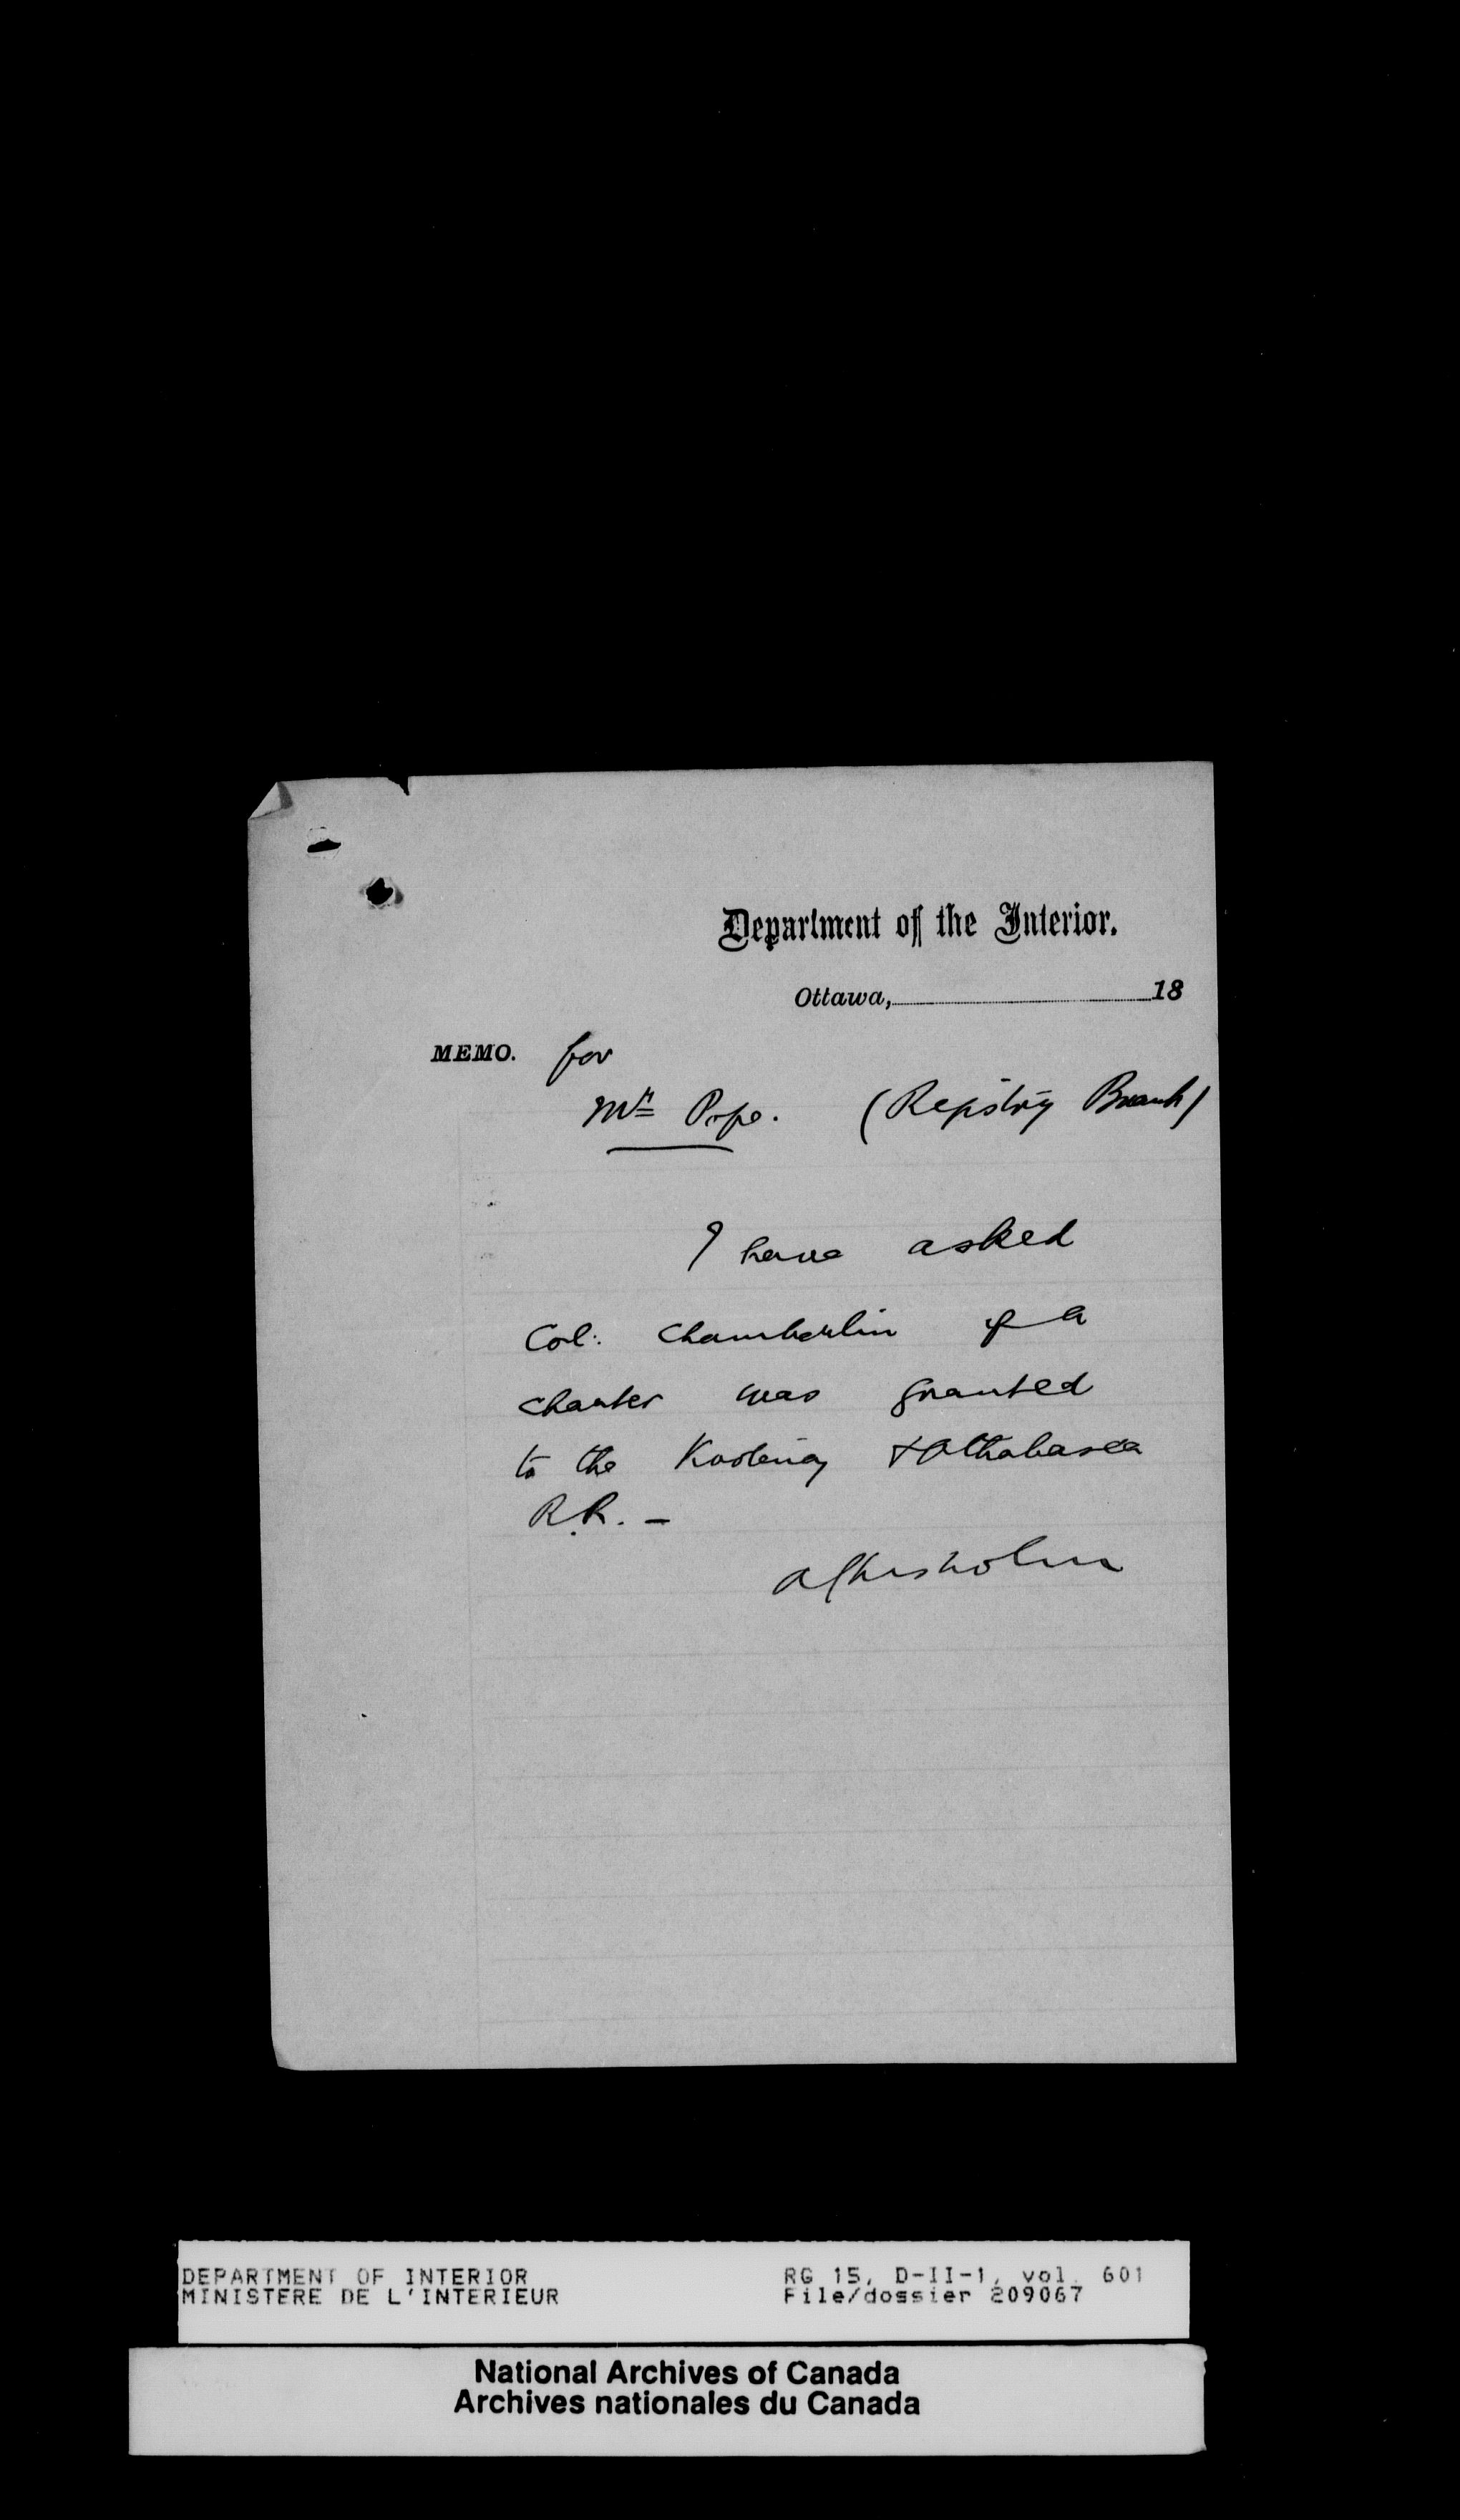 Department of the Interior.
Ottawa, 18
MEMO. for
Mr Pope. (Registry Branch)
I have asked
Col: Chamberlin if a
charter was granted
to the Kootenay & Athabasca
R.R. —
A Chisholm
DEPARTMENT OF INTERIOR RG 15, D-II-1, vol. 601
MINISTERE DE L'INTERIEUR File/dossier 209067
National Archives of Canada
Archives nationales du Canada